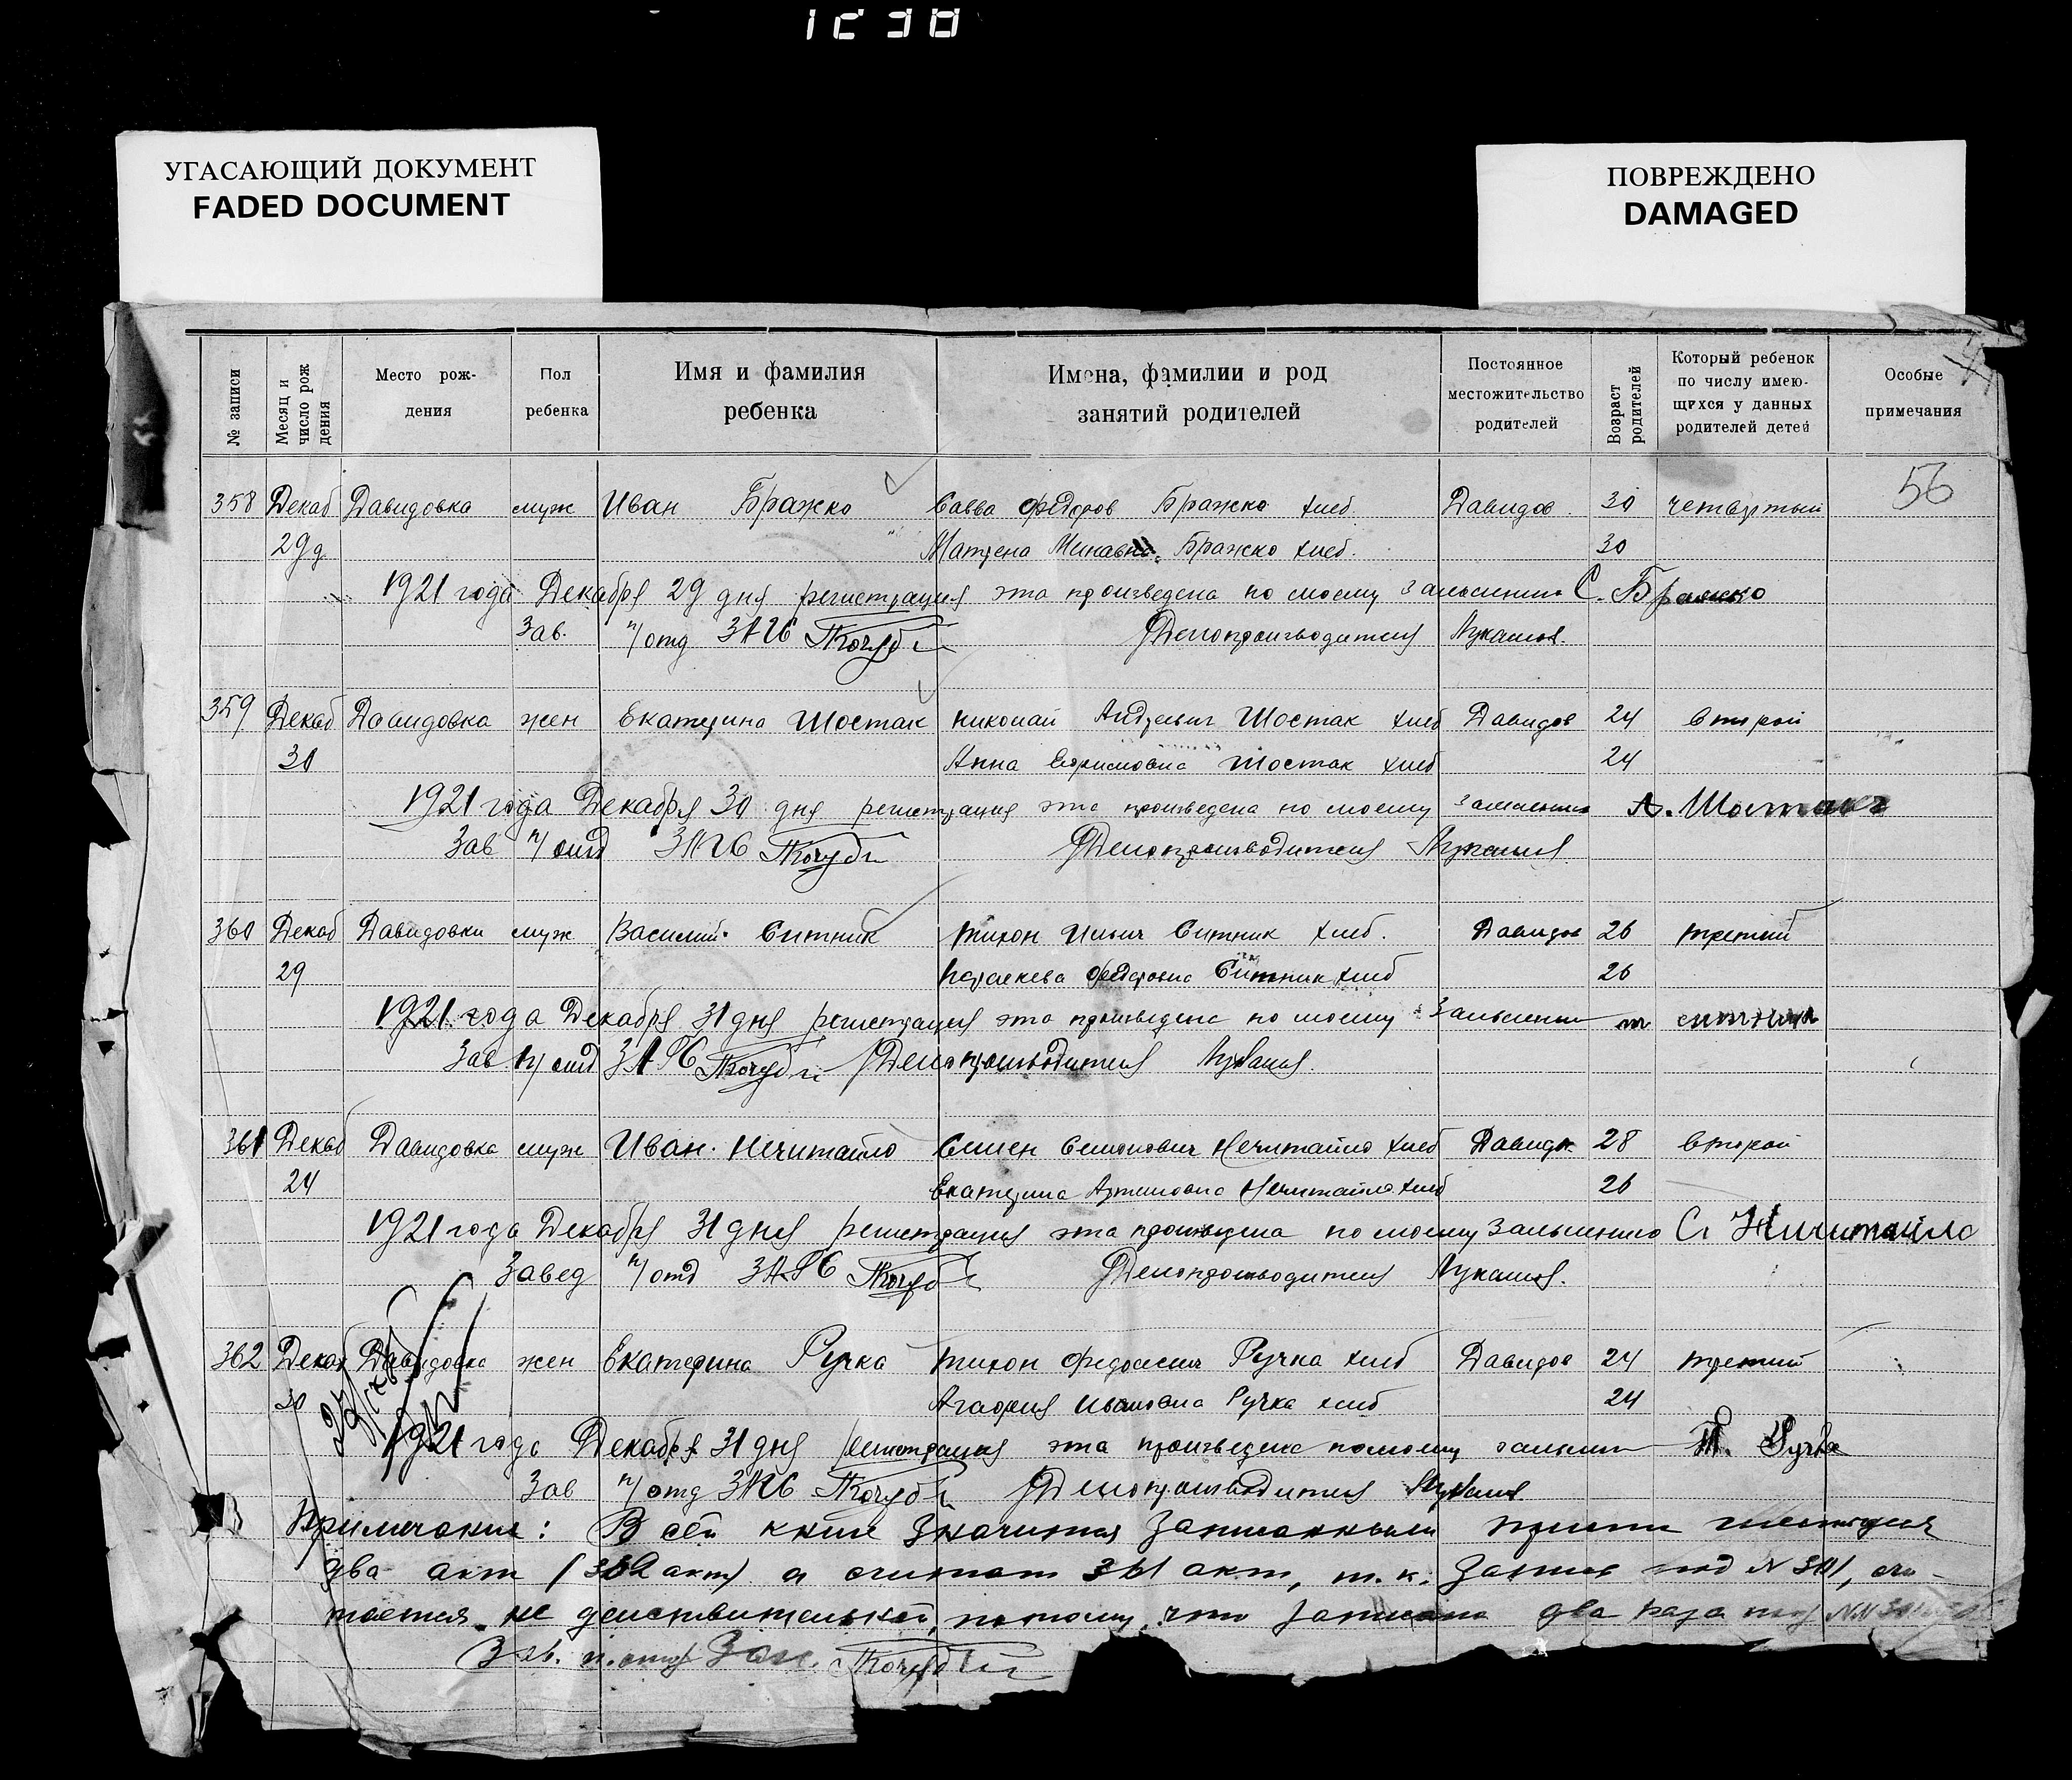 1238
УГАСАЮЩИЙ ДОКУМЕНТ
FADED DOCUMENT
ПОВРЕЖДЕНО
DAMAGED
№ записи
Месяц и число рождения
Место рождения
Пол ребенка
Имя и фамилия ребенка
Имена, фамилии и род занятий родителей
Постоянное местожительство родителей
Возраст родителей
Который ребенок по числу имеющихся у данных родителей детей
Особые примечания
56
358 Декаб Давидовка муж Иван Бражко Савва Федоров Бражко хлеб. Давидов 30 четвертый
29 д Матрена Бражко хлеб. 30
1921 года Декабря 29 дня регистрация эта произведена по моему С. Бражко
Зав. п/отд ЗАГС Делопроизводитель
359 Декаб Давидовка жен Екатерина Шостак Николай Андреевич Шостак хлеб Давидов 24 второй
30 Анна Ефимовна Шостак хлеб 24
1921 года Декабря 30 дня регистрация эта произведена по моему А. Шостак
Зав п/отд ЗАГС Делопроизводитель
360 Декаб Давидовки муж Василий Ситник Тихон Ильич Ситник хлеб. Давидов 26 третий
29 Параскева Федоровна Ситник хлеб 26
1921 года Декабря 31 дня регистрация эта произведена по моему
Зав п/отд ЗАГС Делопроизводитель
361 Декаб Давидовка муж Иван Нечитайло Семен Семенович Нечитайло хлеб Давидов 28 второй
24 Екатерина Артемовна Нечитайло хлеб 26
1921 года Декабря 31 дня регистрация эта произведена по моему С. Ничитайло
Завед п/отд ЗАГС Делопроизводитель
362 Декаб Давидовка жен Екатерина Ручка Тихон Ручка хлеб Давидов 24 третий
30 Агафия Ивановна Ручка хлеб 24
1921 года Декабря 31 дня регистрация эта произведена по моему Т. Ручка
Зав п/отд ЗАГС Делопроизводитель
Примечание: В сей книге значится записанными триста шестьдесят
два акт (362 акт) а считат 361 акт, т. к. под № 301, счи-
тается не действительной, потому, что записано два раза под
Зав. п. отд Заг.